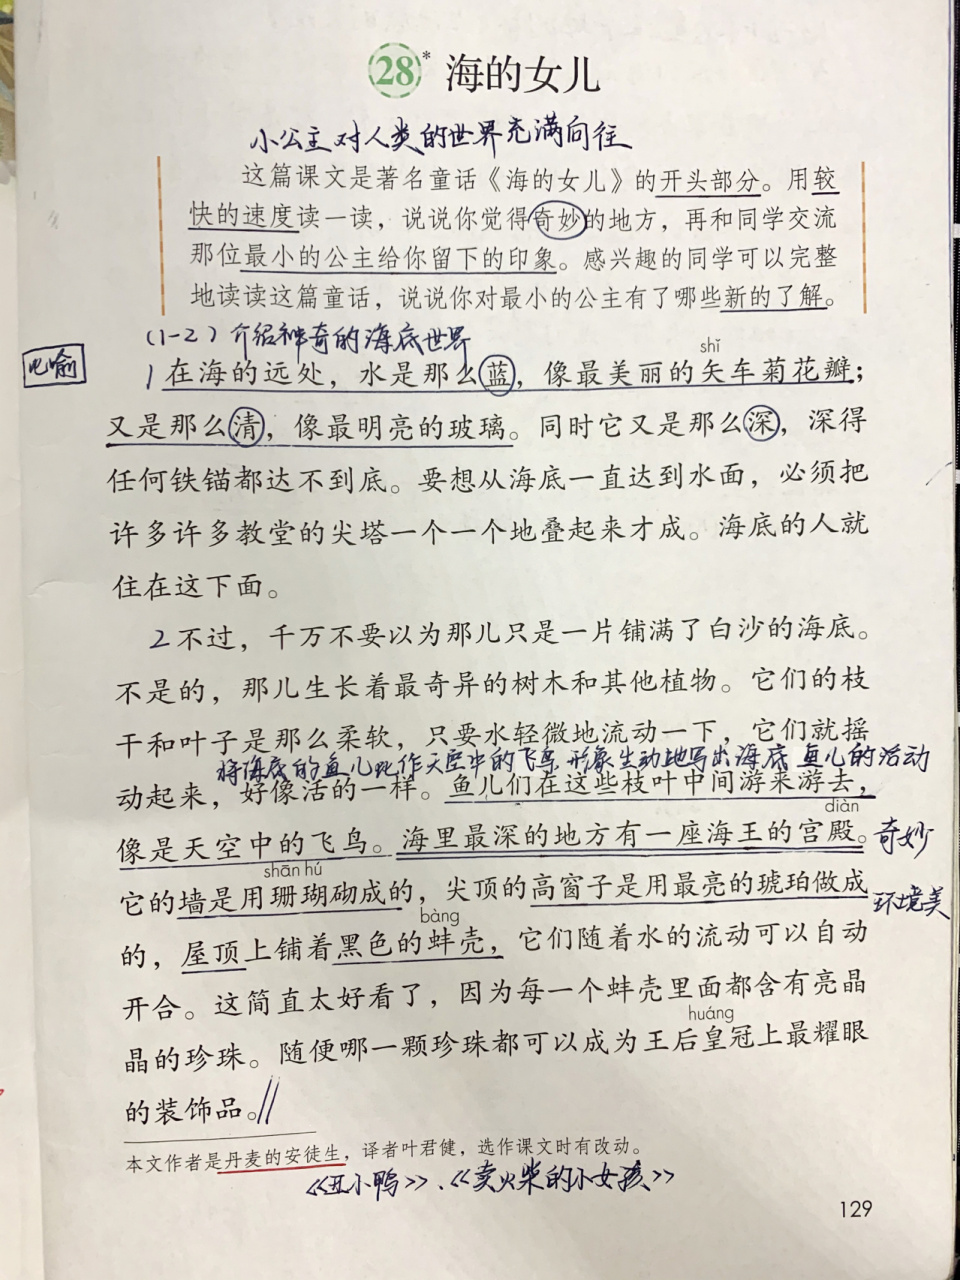 28* 海的女儿
小公主对人类的世界充满向往
这篇课文是著名童话《海的女儿》的开头部分。用较
快的速度读一读，说说你觉得奇妙的地方，再和同学交流
那位最小的公主给你留下的印象。感兴趣的同学可以完整
地读读这篇童话，说说你对最小的公主有了哪些新的了解。
(1-2) 介绍神奇的海底世界
比喻
shǐ
1 在海的远处，水是那么蓝，像最美丽的矢车菊花瓣；
又是那么清，像最明亮的玻璃。同时它又是那么深，深得
任何铁锚都达不到底。要想从海底一直达到水面，必须把
许多许多教堂的尖塔一个一个地叠起来才成。海底的人就
住在这下面。
2 不过，千万不要以为那儿只是一片铺满了白沙的海底。
不是的，那儿生长着最奇异的树木和其他植物。它们的枝
干和叶子是那么柔软，只要水轻微地流动一下，它们就摇
将海底的鱼儿比作天空中的飞鸟 形象生动地写出海底鱼儿的活动
动起来，好像活的一样。鱼儿们在这些枝叶中间游来游去，
diàn
像是天空中的飞鸟。海里最深的地方有一座海王的宫殿。奇妙
shān hú
它的墙是用珊瑚砌成的，尖顶的高窗子是用最亮的琥珀做成 环境美
bàng
的，屋顶上铺着黑色的蚌壳，它们随着水的流动可以自动
开合。这简直太好看了，因为每一个蚌壳里面都含有亮晶
huáng
晶的珍珠。随便哪一颗珍珠都可以成为王后皇冠上最耀眼
的装饰品。//
本文作者是丹麦的安徒生，译者叶君健，选作课文时有改动。
《丑小鸭》、《卖火柴的小女孩》
129